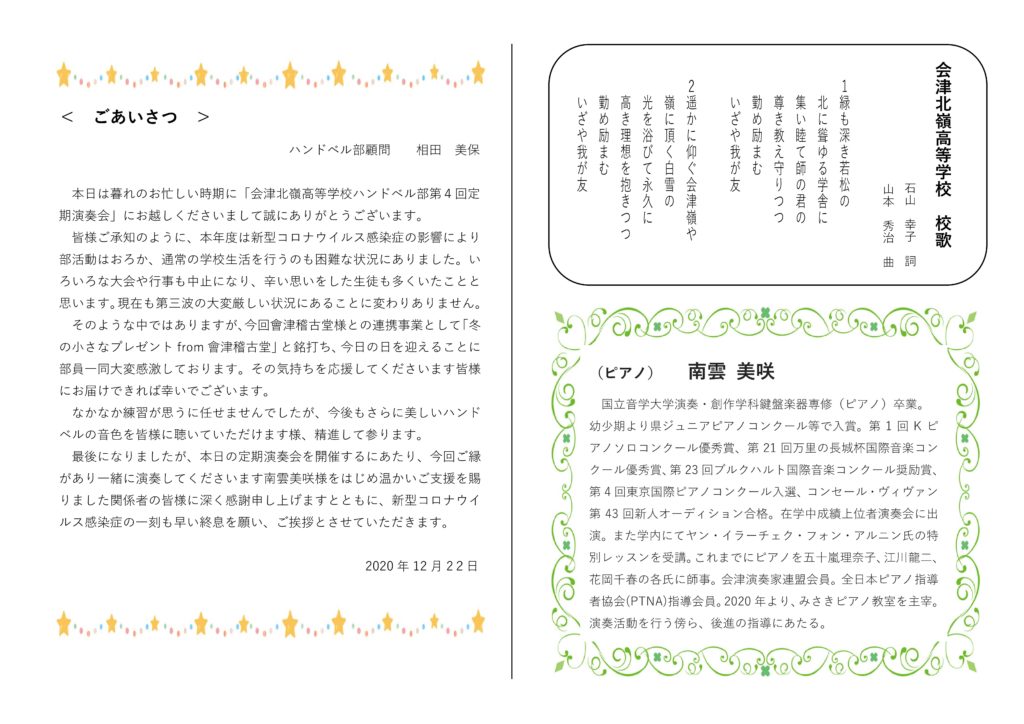 ＜　ごあいさつ　＞
ハンドベル部顧問　　相田　美保
本日は暮れのお忙しい時期に「会津北嶺高等学校ハンドベル部第４回定
期演奏会」にお越しくださいまして誠にありがとうございます。
皆様ご承知のように、本年度は新型コロナウイルス感染症の影響により
部活動はおろか、通常の学校生活を行うのも困難な状況にありました。い
ろいろな大会や行事も中止になり、辛い思いをした生徒も多くいたことと
思います。現在も第三波の大変厳しい状況にあることに変わりありません。
そのような中ではありますが、今回會津稽古堂様との連携事業として「冬
の小さなプレゼント from 會津稽古堂」と銘打ち、今日の日を迎えることに
部員一同大変感激しております。その気持ちを応援してくださいます皆様
にお届けできれば幸いでございます。
なかなか練習が思うに任せませんでしたが、今後もさらに美しいハンド
ベルの音色を皆様に聴いていただけます様、精進して参ります。
最後になりましたが、本日の定期演奏会を開催するにあたり、今回ご縁
があり一緒に演奏してくださいます南雲美咲様をはじめ温かいご支援を賜
りました関係者の皆様に深く感謝申し上げますとともに、新型コロナウイ
ルス感染症の一刻も早い終息を願い、ご挨拶とさせていただきます。
2020 年 12 月 2 2 日
会津北嶺高等学校　校歌
石山　幸子　詞
山本　秀治　曲
1 緑も深き若松の
北に聳ゆる学舎に
集い睦て師の君の
尊き教え守りつつ
勤め励まむ
いざや我が友
2 遥かに仰ぐ会津嶺や
嶺に頂く白雪の
光を浴びて永久に
高き理想を抱きつつ
勤め励まむ
いざや我が友
（ピアノ）　南雲 美咲
国立音学大学演奏・創作学科鍵盤楽器専修（ピアノ）卒業。
幼少期より県ジュニアピアノコンクール等で入賞。第 1 回 K ピ
アノソロコンクール優秀賞、第 21 回万里の長城杯国際音楽コン
クール優秀賞、第 23 回ブルクハルト国際音楽コンクール奨励賞、
第 4 回東京国際ピアノコンクール入選、コンセール・ヴィヴァン
第 43 回新人オーディション合格。在学中成績上位者演奏会に出
演。また学内にてヤン・イラーチェク・フォン・アルニン氏の特
別レッスンを受講。これまでにピアノを五十嵐理奈子、江川龍二、
花岡千春の各氏に師事。会津演奏家連盟会員。全日本ピアノ指導
者協会(PTNA)指導会員。2020 年より、みさきピアノ教室を主宰。
演奏活動を行う傍ら、後進の指導にあたる。